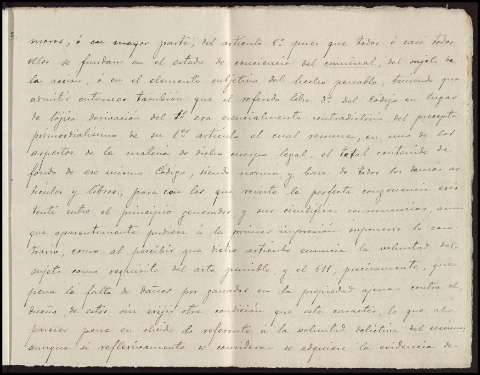 meros, ó su mayor parte, del artículo 1º pues que todos ó casi todos
ellos se fundan en el estado de conciencia del criminal, del sujeto de
la accion, ó en el elemento subjetivo del hecho penable, teniendo que
admitir entonces tambien que el referido libro 3º del Código en lugar
de lógica derivacion del 1º era esencialmente contradictorio del precepto
primordialísimo de su 1er artículo el cual resume, en uno de los
aspectos de la materia de dicho cuerpo legal, el total contenido de
fondo de ese mismo Código, siendo norma y base de todos los demas ar
tículos y libros, para con los que revista la perfecta congruencia exis
tente entre el principio generador y sus científicas consecuencias, aun
que aparentemente pudiera á la primera impresión suponerse lo con
trario, como al percibir que dicho artículo enuncia la voluntad del
sujeto como requisito del acto punible, y el 611, precisamente, que
pena la falta de daños por ganados en la propiedad ajena contra el
dueño, de estos sin exijir otra condición que este caracter, lo que al
parecer pena en olvido lo referente á la voluntad delictiva del mismo
aunque si reflexivamente se considera se adquiere la evidencia de